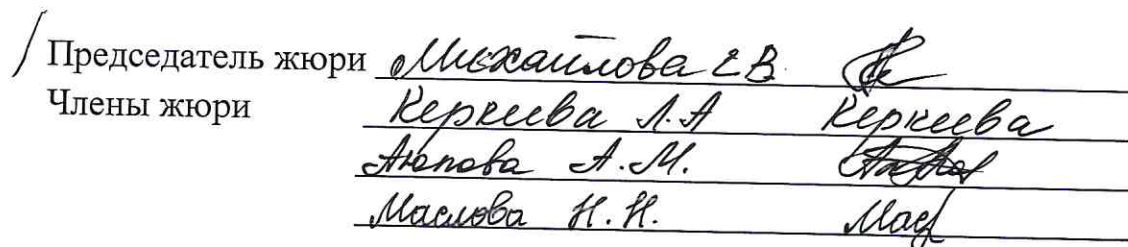 Председатель жюри Михайлова Е.В.
Члены жюри Керкиева Л.А Керкиева
Аюпова А.М.
Маслова Н.Н. Мас